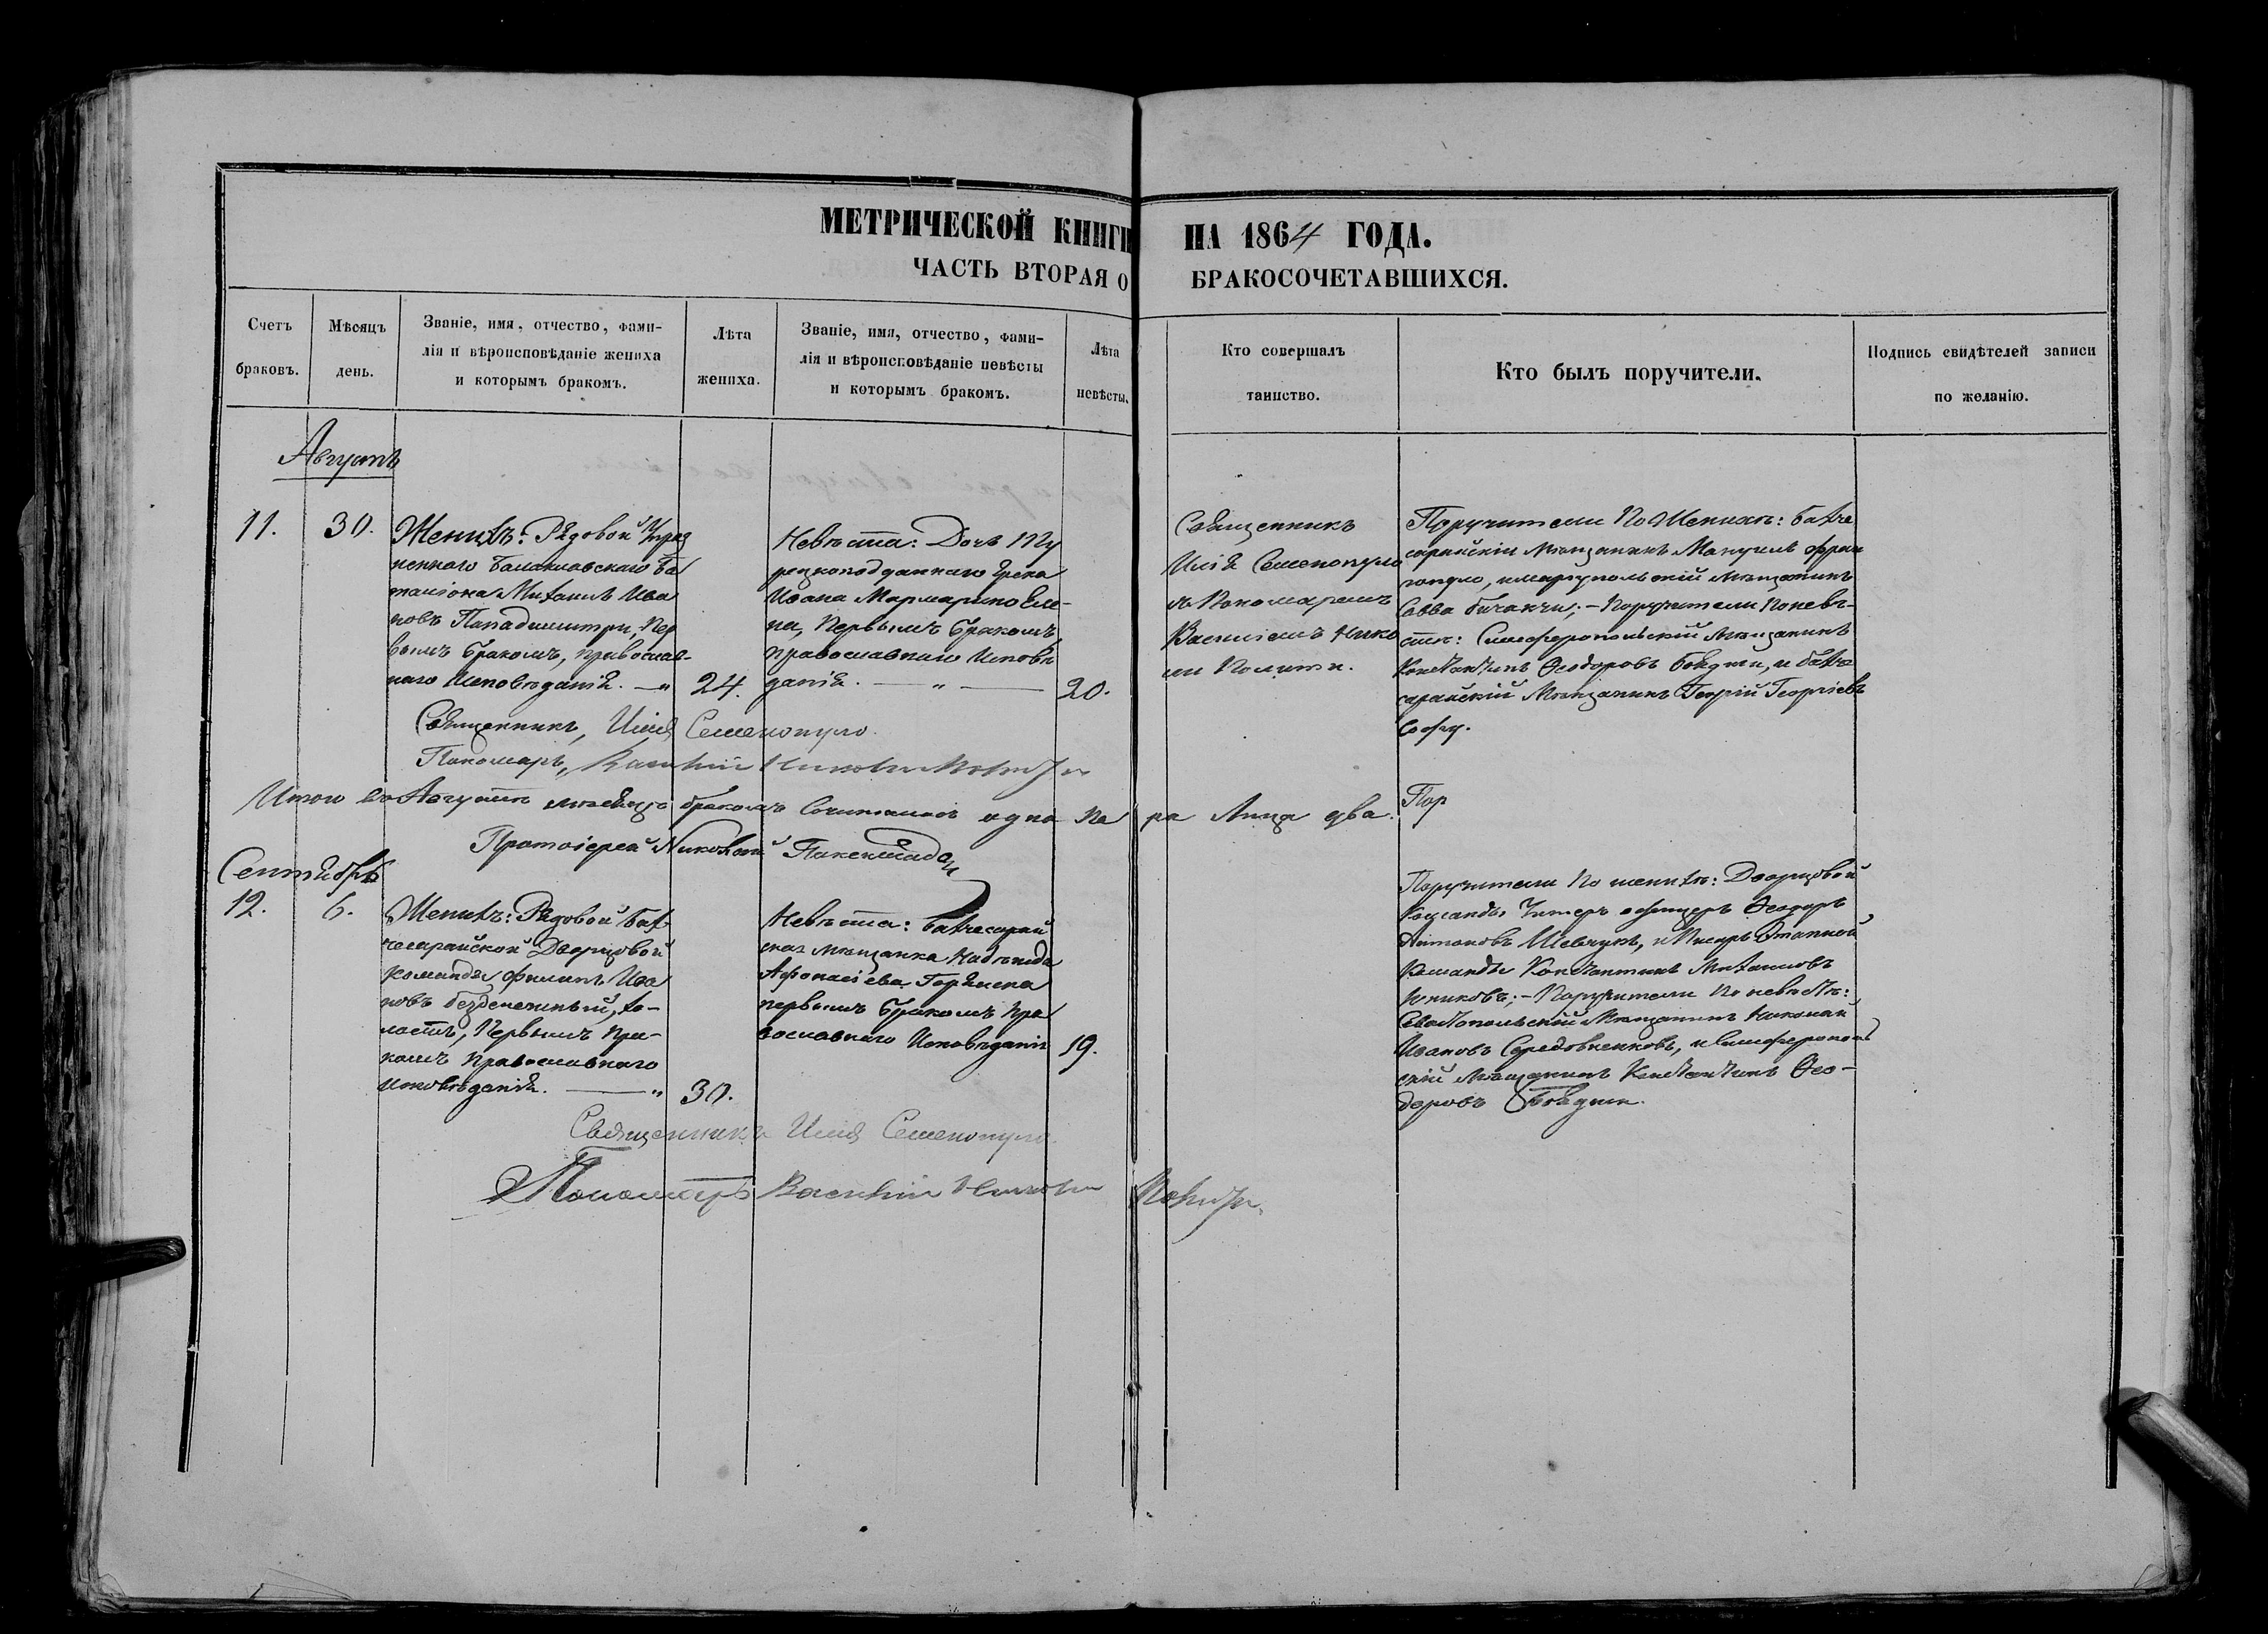 МЕТРИЧЕСКОЙ КНИГИ НА 1864 ГОДА.
ЧАСТЬ ВТОРАЯ О БРАКОСОЧЕТАВШИХСЯ.
Счетъ
браковъ.
Мѣсяцъ
день.
Званіе, имя, отчество, фами-
лія и вѣроисповѣданіе жениха
и которымъ бракомъ.
Лѣта
жениха.
Званіе, имя, отчество, фами-
лія и вѣроисповѣданіе невѣсты
и которымъ бракомъ.
Лѣта
невѣсты.
Кто совершалъ
таинство.
Кто былъ поручители.
Подпись свидѣтелей записи
по желанію.
Августъ
11.
30.
Женихъ: Рядовой Упраз
неннаго Балаклавскаго Ба
таліона Михаилъ Ива
новъ Пападимитри, Пер
вымъ бракомъ, православ-
наго Исповѣданія. — „
24.
Невѣста: Дочь Ту
рецкоподданнаго Грека
Ивана Мармарино Еле-
на, Первымъ бракомъ,
православнаго Исповѣ
данія. — „ —
20.
Священникъ
Илія Семенопуло
съ Пономаремъ
Василіемъ Нико
ли Полити.
Поручители По Женихѣ: Бахче
сарайскій Мѣщанинъ Мануилъ Фран
гопуло, и маріупольскій Мѣщанинъ
Савва Бичакчи; - Поручители По невѣ-
стѣ: Симферопольскій Мѣщанинъ
Константинъ Ѳеодоровъ Бояджи, и Бахче
сарайскій Мѣщанинъ Георгій Георгіевъ
Софу.
Священникъ, Илія Семенопуло.
Пономарь, Василій Николи Полити
Итого въ Августѣ мѣсяцѣ бракомъ Сочиталась одна Па ра Лица два.
Пор
Протоіерей Николай
Сентябрь
12.
6.
Женихъ: Рядовой Бах
чесарайской Дворцовой
Команды Филипъ Ива
новъ Безденежный, хо-
лостъ, Первымъ бра-
комъ Православнаго
исповѣданія. — „
30.
Невѣста: Бахчесарай
ская мѣщанка Надежда
Афонасіева Горянска
первымъ бракомъ Пра
вославнаго Исповѣданія
19.
Поручители По женихѣ: Дворцовой
Команды Унтеръ офицеръ Ѳеодоръ
Антоновъ Шевчукъ, и Писарь Этапной
Команды Константинъ Михаиловъ
Поручители По невѣстѣ:
Севастопольскій Мѣщанинъ Николай
Ивановъ и Симферополь
скій мѣщанинъ Константинъ Ѳео-
доровъ Бояджи.
Священникъ Илія Семенопуло.
Пономарь Василій Николи Полити.